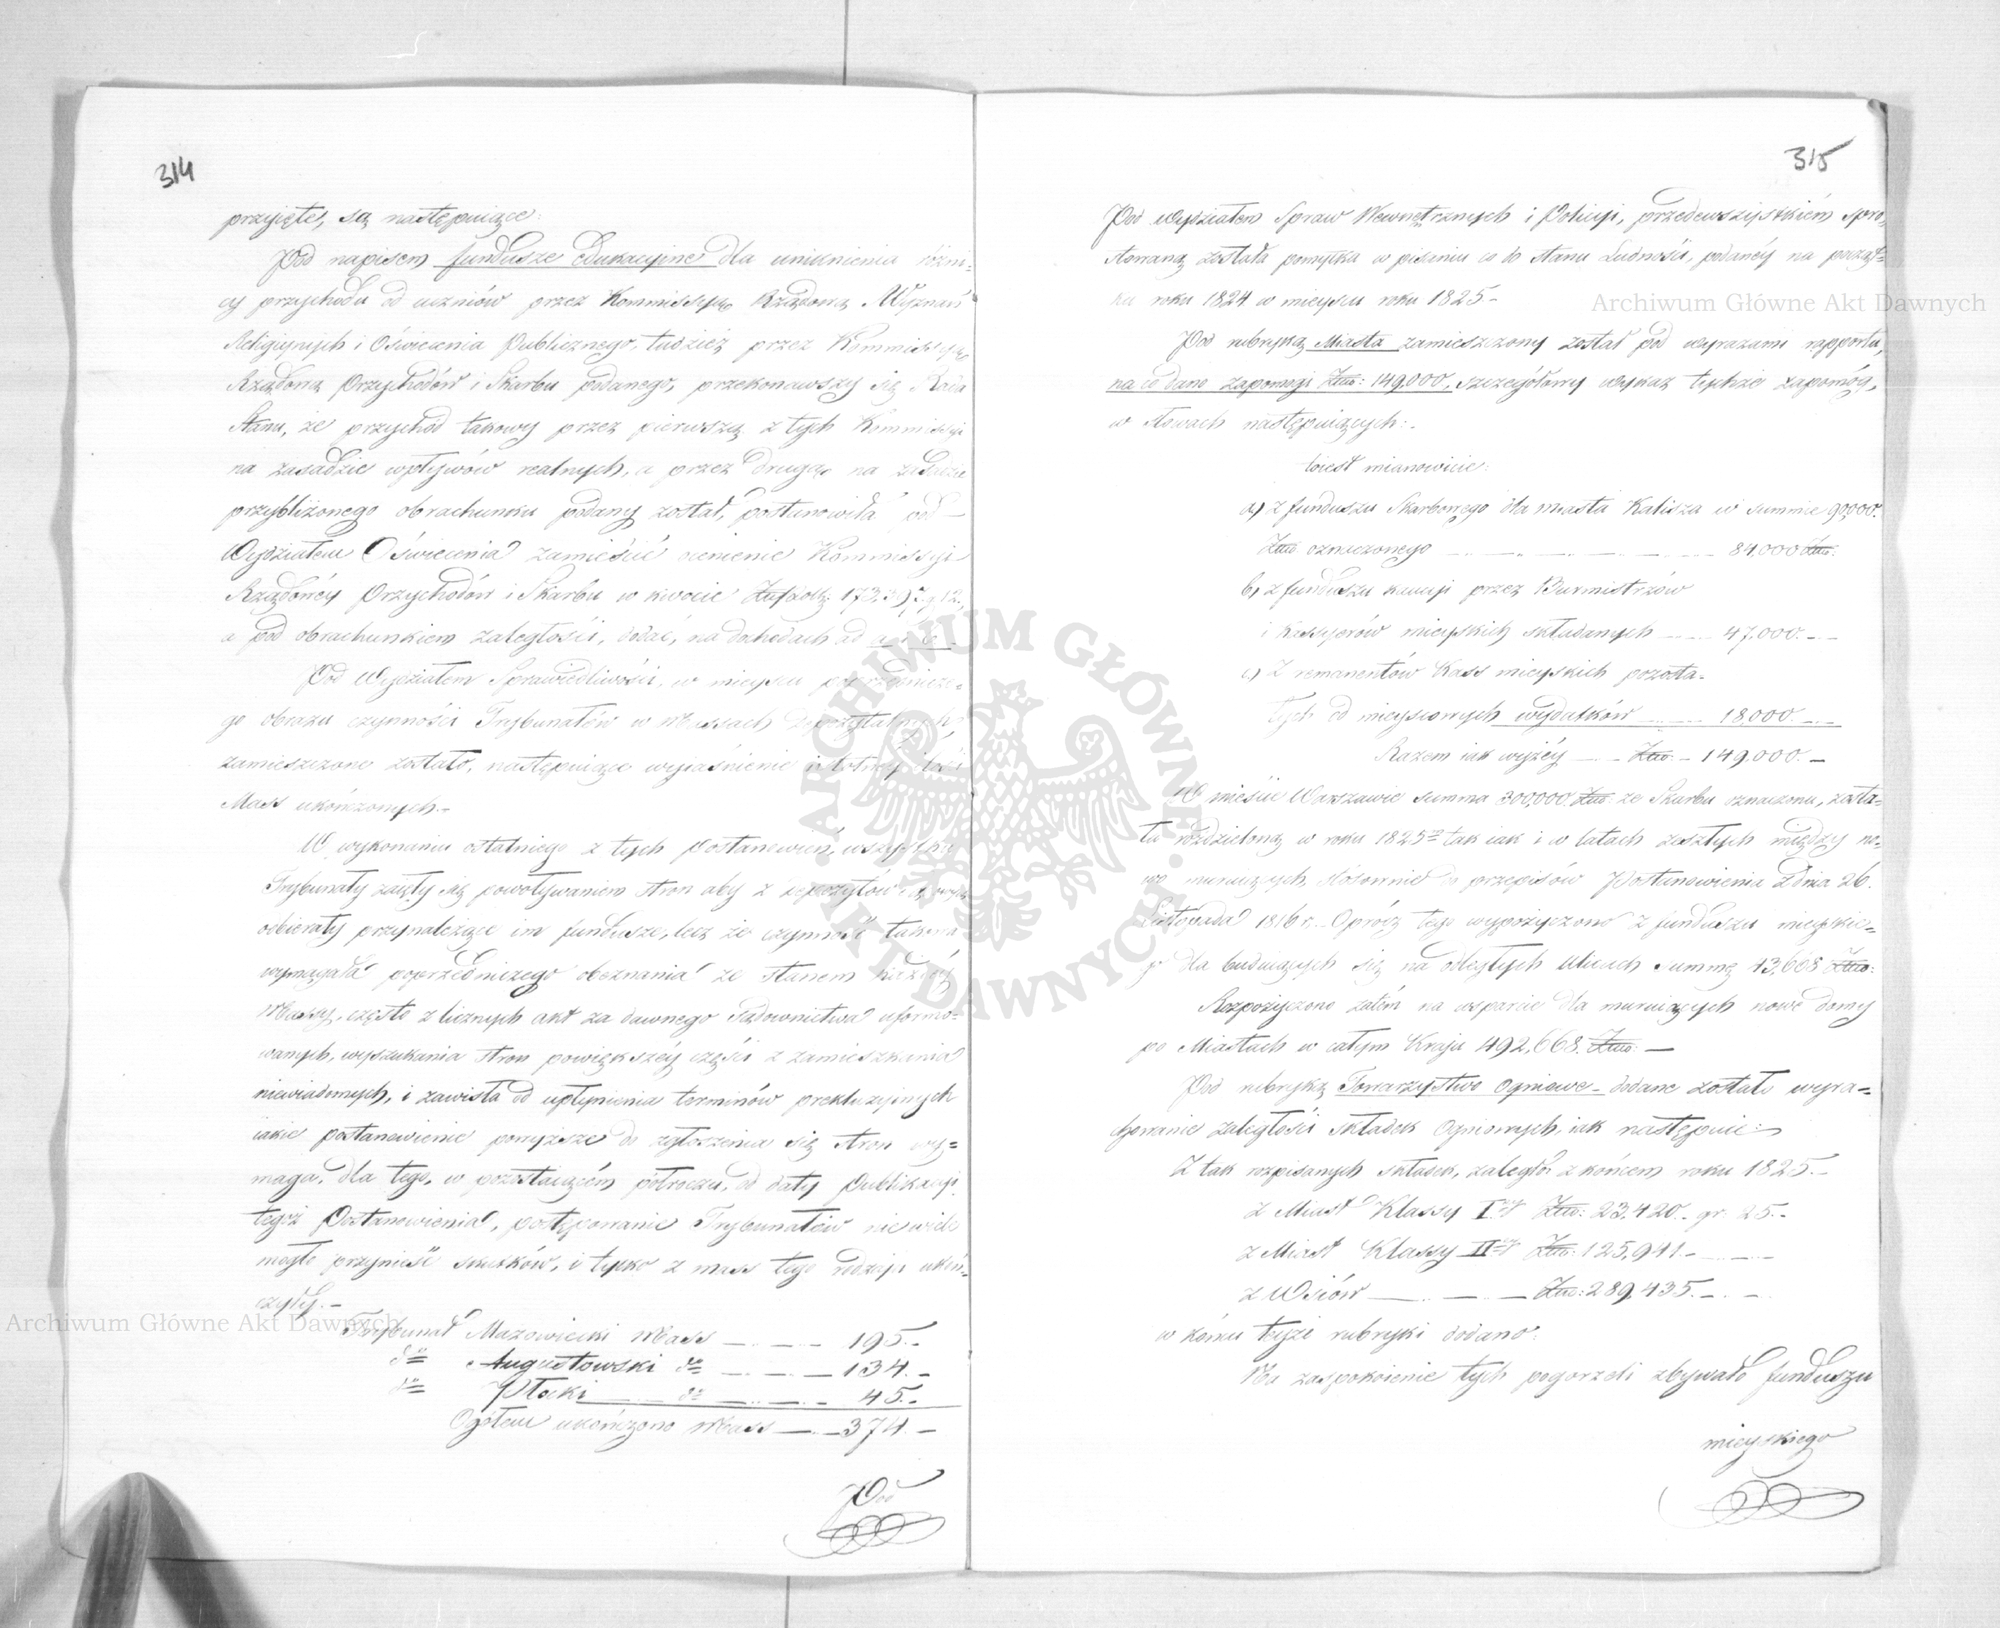 314
przyięte, są następuiące:
Pod napisem fundusze Edukacyine dla uniknienia różni-
cy przychodu od uczniów przez Kommissyą Rządową Wyznań
Religiynych i Oświecenia Publicznego, tudzież przez Kommissyą
Rządową Przychodów i Skarbu podanego, przekonawszy się Rada
Stanu, że przychód takowy przez pierwszą z tych Kommissyi
na zasadzie wpływów realnych, a przez drugą na zasadzie
przybliżonego obrachunku podany został, postanowiła pod
Wydziałem Oświecenia zamieścić ocenienie Kommissyi
Rządowéy Przychodów i Skarbu w kwocie
a pod obrachunkiem zaległości, dodać, na dochodach ad
Pod Wydziałem Sprawiedliwości, w mieyscu poprzednicze-
go obrazu czynności Trybunałów w Massach Depozytalnych,
zamieszczone zostało, następuiące wyiaśnienie istotney ilości
Mass ukończonych.-
W wykonaniu ostatniego z tych Postanowień, wszystkie
Trybunały zaięły się powoływaniem stron aby z depozytów
odbierały przynależące im fundusze, lecz że czynność takowa
wymagała poprzedniczego obeznania ze stanem każdéy
Massy, często z licznych akt za dawnego Sądownictwa uformo-
wanych, wyszukania stron powiększéy części z zamieszkania
niewiadomych, i zawisła od upłynienia terminów prekluzyinych
iakie postanowienie powyższe do zgłoszenia się stron wy-
maga, dla tego, w pozostaiącém półroczu, od daty Publikacyi
tegoż Postanowienia, postępowanie Trybunałów nie wiele
mogło przynieść skutków, i tylko z mass tego rodzaju ukoń-
czyły.-
Trybunał Mazowiecki Mass 195.-
do Augustowski do 134.-
do Płocki do 45.-
Ogółem ukończono Mass 374.-
Pod
315
Pod Wydziałem Spraw Wewnętrznych i Policyi, przedewszystkiém spro-
stowaną została pomyłka w pisaniu co do stanu Ludności, podanéy na począt-
ku roku 1824 w mieyscu roku 1825-
Pod rubryką Miasta zamieszczony został pod wyrazami rapportu,
na co dano zapomogi Złtp: 149,000, szczegółowy wykaz tychże zapomóg,
w słowach następuiących:-
toiest mianowicie:
a) z funduszu Skarbowego dla miasta Kalisza w summie 90,000.
Złtp oznaczonego 84,000 Złtp:
b) z funduszu kaucyi przez Burmistrzów
i Kassyerów mieyskich składanych 47,000.-
c) z remanentów Kass mieyskich pozosta-
łych od mieyscowych wydatków 18,000.-
Razem iak wyżéy Złtp: 149,000.-
W mieście Warszawie summa 300,000 Złtp ze Skarbu oznaczona, zosta-
ła rozdzieloną w roku 1825m tak iak i w latach zeszłych między no-
wo muruiących, stosownie do przepisów Postanowienia z Dnia 26.
Listopada 1816 r. Oprócz tego wypożyczono z funduszu mieyskie-
go dla buduiących się na odległych Ulicach summę 43,668 Złtp:
Rozpożyczono zatém na wsparcie dla muruiących nowe domy
po Miastach w całym Kraju 492,668. Złtp:-
Pod rubryką Towarzystwo Ogniowe- dodane zostało wyra-
chowanie zaległości składek Ogniowych, iak następuie:
Z tak rozpisanych składek, zaległo z końcem roku 1825.-
z Miast Klassy I. Złtp: 23,420.- gr: 25.-
z Miast Klassy II Złtp: 125,941.-
z Wsiów Złtp: 289,435.-
w końcu teyże rubryki dodano:
Na zaspokoienie tych pogorzeli zbywało funduszu
mieyskiego
Archiwum Główne Akt Dawnych
Archiwum Główne Akt Dawnych
ARCHIWUM GŁÓWNE AKT DAWNYCH